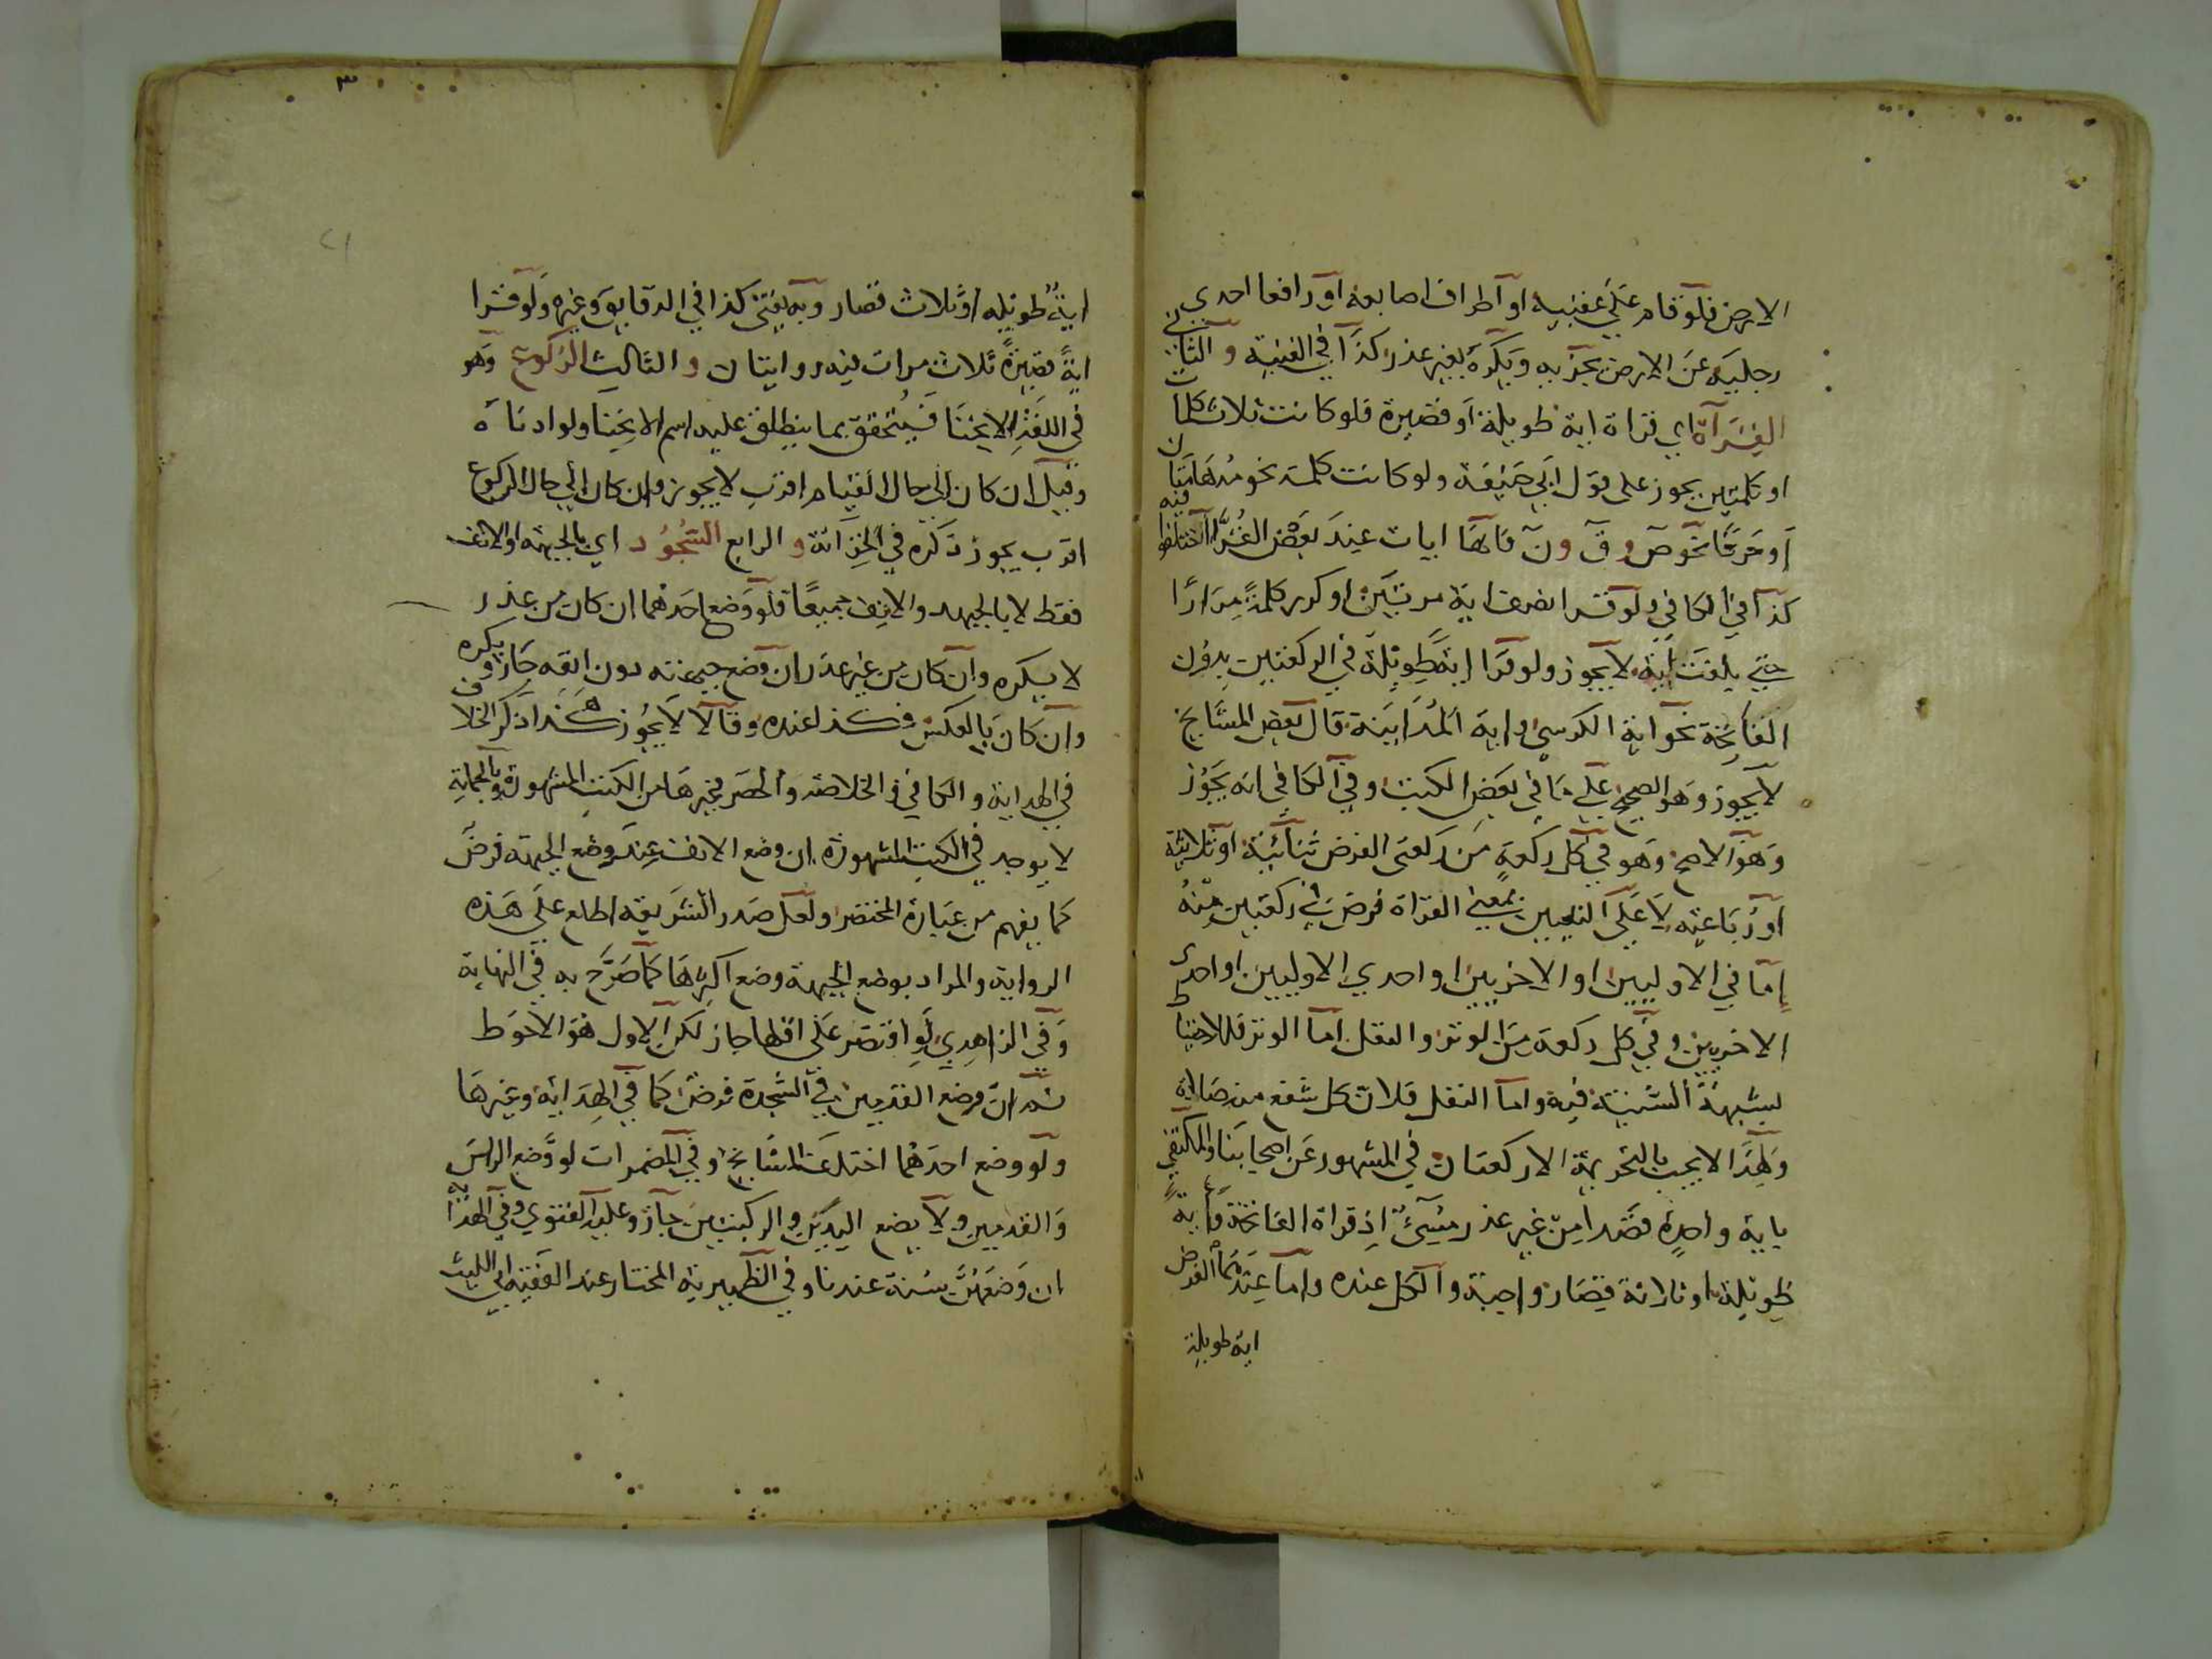 الارض فلو قام علي عقبيه او اطراف اصابعه او رافعا احدي
رجليه عن الارض يجزيه ويكره بغير عذر كذا في القنية و الثاني
القراة اي قراة اية طويلة او قصيرة فلو كانت ثلاث كلمات
او كلمتين يجوز على قول ابي حنيفة ولو كانت كلمة نحو مدهامتان
او حرفا نحو ص و ق و ن فانها ايات عند بعض القرا اختلفوا فيه
كذا في الكافي ولو قرا نصف اية مرتين او كرر كلمة مرارا
حتي بلغت اية لا يجوز ولو قرا اية طويلة في الركعتين بدون
الفاتحة نحو اية الكرسي واية المداينة قال بعض المشايخ
لا يجوز وهو الصحيح علي ما في بعض الكتب وفي الكافي انه يجوز
وهو الاصح وهو في كل ركعة من ركعتى الفرض ثنائية او ثلاثية
او رباعية لا على التعيين بمعني القراة فرض في ركعتين منه
اما في الاوليين او الاخريين او احدي الاوليين او احدى
الاخريين وفي كل ركعة من الوتر والنفل اما الوتر فللاحتياط
لشبهة السنية فيه واما النفل فلان كل شفع منه صلاة
ولهذا لا يجب بالتحريمة الا ركعتان في المشهور عن اصحابنا والمكتفي
باية واحدة قصدا من غير عذر مسيء اذ قراة الفاتحة واية
طويلة او ثلاثة قصار واجبة والكل عنده واما عندهما الفرض
اية طويلة
٣
٢١
اية طويلة او ثلاث قصار وبه يفتى كذا في الدقايق وغيره ولو قرا
اية قصيرة ثلاث مرات فيه روايتان و الثالث الركوع وهو
في اللغة الانحنا فيتحقق بما ينطلق عليه اسم الانحنا ولو ادناه
وقيل ان كان الي حال القيام اقرب لا يجوز وان كان الي حال الركوع
اقرب يجوز ذكره في الخزانة و الرابع السجود اي بالجبهة او الانف
فقط لا بالجبهة والانف جميعا فلو وضع احدهما ان كان من عذر
لا يكره وان كان من غير عذر ان وضع جبهته دون انفه جاز ويكره
وان كان بالعكس فكذا عنده وقالا لا يجوز هكذا ذكر الخلاف
في الهداية والكافي والخلاصة والحصر وغيرها من الكتب المشهورة وبالجملة
لا يوجد في الكتب المشهورة ان وضع الانف عند وضع الجبهة فرض
كما يفهم من عبارة المختصر ولعل صدر الشريعة اطلع علي هذه
الرواية والمراد بوضع الجبهة وضع اكثرها كما صرح به في النهاية
وفي الزاهدي لو اقتصر على اقلها جاز لكن الاول هو الاحوط
ثم ان وضع القدمين في السجدة فرض كما في الهداية وغيرها
ولو وضع احدهما اختلف المشايخ وفي المضمرات لو وضع الراس
والقدمين ولا يضع اليدين والركبتين جاز وعليه الفتوي وفي الهداية
ان وضعهن سنة عندنا وفي الظهيرية المختار عند الفقيه ابي الليث